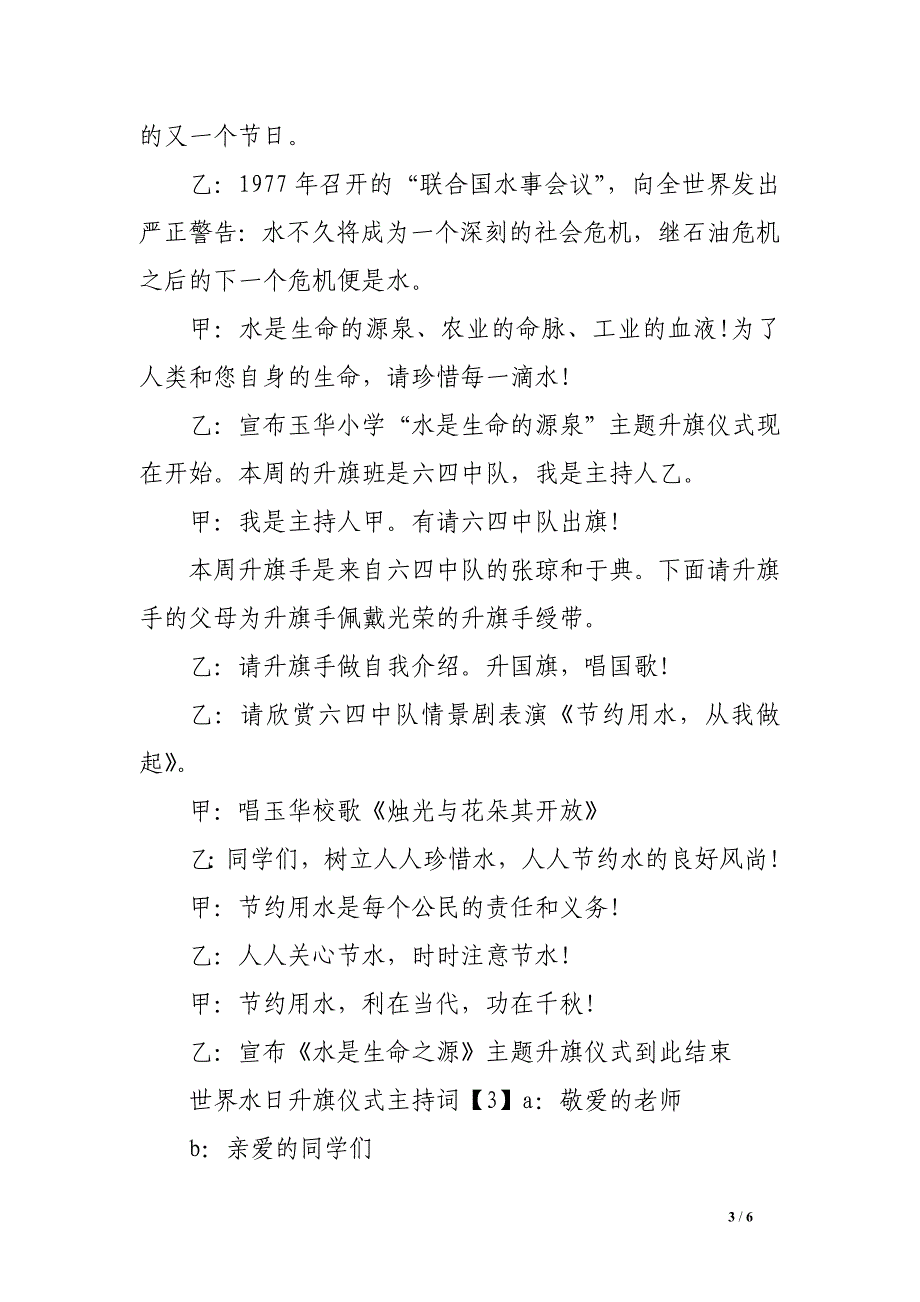 的又一个节日。
乙：1977 年召开的“联合国水事会议”，向全世界发出
严正警告：水不久将成为一个深刻的社会危机，继石油危机
之后的下一个危机便是水。
甲：水是生命的源泉、农业的命脉、工业的血液！为了
人类和您自身的生命，请珍惜每一滴水！
乙：宣布玉华小学“水是生命的源泉”主题升旗仪式现
在开始。本周的升旗班是六四中队，我是主持人乙。
甲：我是主持人甲。有请六四中队出旗！
本周升旗手是来自六四中队的张琼和于典。下面请升旗
手的父母为升旗手佩戴光荣的升旗手绶带。
乙：请升旗手做自我介绍。升国旗，唱国歌！
乙：请欣赏六四中队情景剧表演《节约用水，从我做
起》。
甲：唱玉华校歌《烛光与花朵其开放》
乙：同学们，树立人人珍惜水，人人节约水的良好风尚！
甲：节约用水是每个公民的责任和义务！
乙：人人关心节水，时时注意节水！
甲：节约用水，利在当代，功在千秋！
乙：宣布《水是生命之源》主题升旗仪式到此结束
世界水日升旗仪式主持词【3】a：敬爱的老师
b：亲爱的同学们
3 / 6